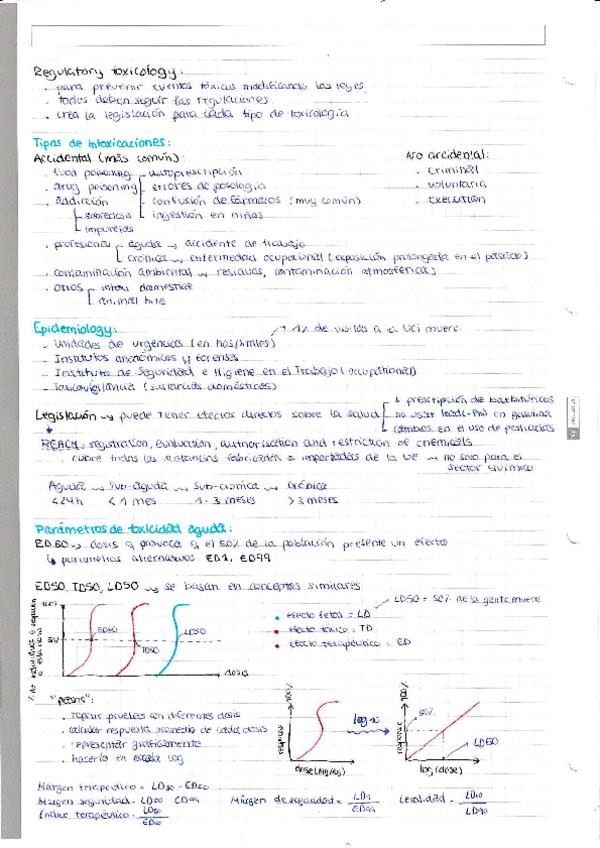 Regulatory toxicology:
. para prevenir eventos tóxicos modificando las leyes
. todos deben seguir las regulaciones
. crea la legislación para cada tipo de toxicología
Tipos de intoxicaciones:
Accidental (más común): No accidental:
. food poisoning autoprescripción . criminal
. drug poisoning errores de posología . voluntaria
. addiction confusión de fármacos (muy común) . execution
sobredosis ingestión en niños
impurezas
. profesional aguda → accidente de trabajo
crónica → enfermedad ocupacional (exposición prolongada en el
. contaminación ambiental → residuos, contaminación atmosférica)
. otros intox doméstica
animal bite
Epidemiology: 1% de visitas a la UCI muere
- Unidades de urgencias (en hospitales)
- Institutos anatómicos y forenses
- Instituto de Seguridad e Higiene en el Trabajo (occupational)
- Toxicovigilancia (sustancias domésticas)
↓ prescripción de barbitúricos
Legislación → puede tener efectos directos sobre la salud no usar lead (-Pb) en gasolina
cambios en el uso de pesticidas
REACH: registration, evaluation, authorisation and restriction of chemicals
. cubre todas las sustancias fabricadas o importadas de la UE → no solo para el
sector químico
Aguda → Sub-aguda → Sub-crónica → Crónica
<24h < 1 mes 1-3 meses > 3 meses
Parámetros de toxicidad aguda:
ED50 → dosis q provoca q el 50% de la población presente un efecto
↳ parámetros alternativos ED1, ED99
ED50, TD50, LD50 → se basan en conceptos similares
LD50 = 50% de la gente muere
100
50
ED50
TD50
LD50
dosis
• efecto letal = LD
• efecto tóxico = TD
• efecto terapéutico = ED
"pasos":
. repetir pruebas con diferentes dosis
. calcular respuesta promedio de cada dosis
. representar gráficamente
. hacerlo en escala log
100%
respuesta
dose (mg/kg)
log 10
100%
50%
respuesta
LD50
log (dose)
Margen terapéutico = LD50 - ED50
Margen seguridad = LD50 ED99 Margen de seguridad = LD1/ED99 Letalidad =
Índice terapéutico = LD50/ED50